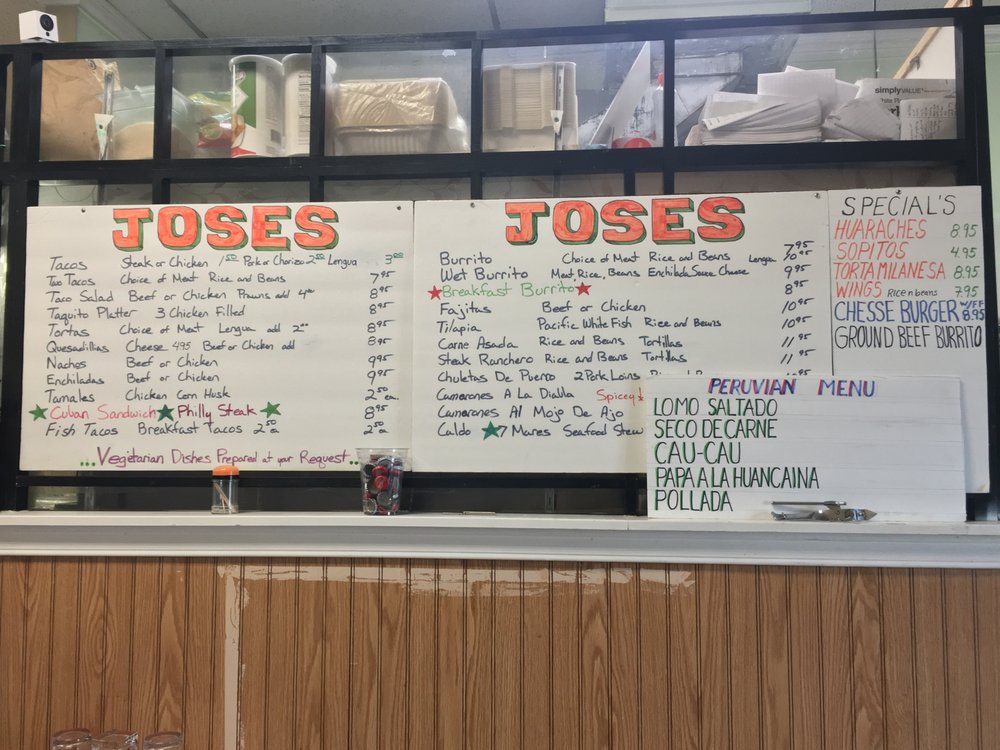 simplyVALUE
JOSES
Tacos Steak or Chicken 1 50 Pork or Chorizo 2 00 Lengua 3 00
Two Tacos Choice of Meat Rice and Beans 7 95
Taco Salad Beef or Chicken Prawns add 4 00 8 95
Taquito Platter 3 Chicken Filled 8 95
Tortas Choice of Meat Lengua add 2 00 8 95
Quesadillias Cheese 4 95 Beef or Chicken add 8 95
Nachos Beef or Chicken 9 95
Enchiladas Beef or Chicken 9 95
Tamales Chicken Corn Husk 2 50 ea.
Cuban Sandwich Philly Steak 8 95
Fish Tacos Breakfast Tacos 2 50 ea 2 50 ea
... Vegetarian Dishes Prepared at your Request...
JOSES
Burrito Choice of Meat Rice and Beans 7 95
Lengua 10 95
Wet Burrito Meat Rice, Beans Enchilada Sauce Cheese 9 95
Breakfast Burrito 8 95
Fajitas Beef or Chicken 10 95
Tilapia Pacific White Fish Rice and Beans 10 95
Carne Asada Rice and Beans Tortillas 11 95
Steak Ranchero Rice and Beans Tortillas 11 95
Chuletas De Puerco 2 Pork Loins
Camarones A La Dialla Spicey
Camarones Al Mojo De Ajo
Caldo 7 Mares Seafood Stew
SPECIAL'S
HUARACHES 8.95
SOPITOS 4.95
TORTA MILANESA 8.95
WINGS Rice n beans 7.95
CHESSE BURGER W/FF 8.95
GROUND BEEF BURRITO
PERUVIAN MENU
LOMO SALTADO
SECO DE CARNE
CAU-CAU
PAPA A LA HUANCAINA
POLLADA